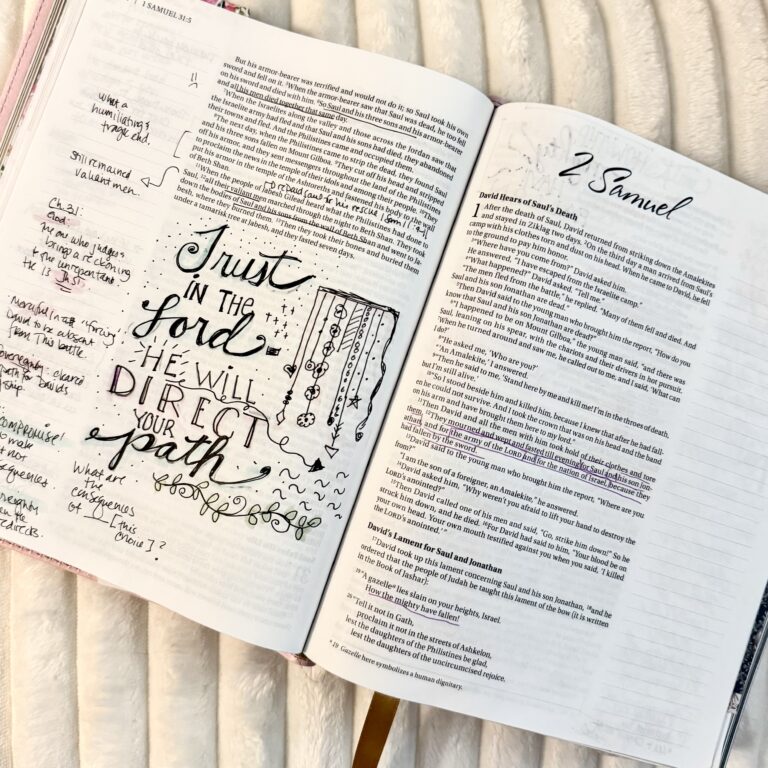 1 SAMUEL 31:5
But his armor-bearer was terrified and would not do it; so Saul took his own
sword and fell on it. ⁵When the armor-bearer saw that Saul was dead, he too fell
on his sword and died with him. ⁶So Saul and his three sons and his armor-bearer
and all his men died together that same day.
⁷When the Israelites along the valley and those across the Jordan saw that
the Israelite army had fled and that Saul and his sons had died, they abandoned
their towns and fled. And the Philistines came and occupied them.
⁸The next day, when the Philistines came to strip the dead, they found Saul
and his three sons fallen on Mount Gilboa. ⁹They cut off his head and stripped
off his armor, and they sent messengers throughout the land of the Philistines
to proclaim the news in the temple of their idols and among their people. ¹⁰They
put his armor in the temple of the Ashtoreths and fastened his body to the wall
of Beth Shan.
¹¹When the people of Jabesh Gilead heard what the Philistines had done to
Saul, ¹²all their valiant men marched through the night to Beth Shan. They took
down the bodies of Saul and his sons from the wall of Beth Shan and went to Ja-
besh, where they burned them. ¹³Then they took their bones and buried them
under a tamarisk tree at Jabesh, and they fasted seven days.
what a
humiliating &
tragic end.
Still remained
valiant men.
Ch. 31:
God:
the one who judges
bring a reckoning
to the unrepentant
He is Just
David to be absent
from this battle.
path for David's
What are
the
consequences
of ___ [this
choice]?
Trust
IN THE
Lord
HE WILL
DIRECT
YOUR
path
2 Samuel
David Hears of Saul's Death
1 After the death of Saul, David returned from striking down the Amalekites
and stayed in Ziklag two days. ²On the third day a man arrived from Saul's
camp with his clothes torn and dust on his head. When he came to David, he fell
to the ground to pay him honor.
³"Where have you come from?" David asked him.
He answered, "I have escaped from the Israelite camp."
⁴"What happened?" David asked. "Tell me."
"The men fled from the battle," he replied. "Many of them fell and died. And
Saul and his son Jonathan are dead."
⁵Then David said to the young man who brought him the report, "How do you
know that Saul and his son Jonathan are dead?"
⁶"I happened to be on Mount Gilboa," the young man said, "and there was
Saul, leaning on his spear, with the chariots and their drivers in hot pursuit.
⁷When he turned around and saw me, he called out to me, and I said, 'What can
I do?'
⁸"He asked me, 'Who are you?'
"'An Amalekite,' I answered.
⁹"Then he said to me, 'Stand here by me and kill me! I'm in the throes of death,
but I'm still alive.'
¹⁰"So I stood beside him and killed him, because I knew that after he had fall-
en he could not survive. And I took the crown that was on his head and the band
on his arm and have brought them here to my lord."
¹¹Then David and all the men with him took hold of their clothes and tore
them. ¹²They mourned and wept and fasted till evening for Saul and his son Jon-
athan, and for the army of the LORD and for the nation of Israel, because they
had fallen by the sword.
¹³David said to the young man who brought him the report, "Where are you
from?"
"I am the son of a foreigner, an Amalekite," he answered.
¹⁴David asked him, "Why weren't you afraid to lift your hand to destroy the
LORD's anointed?"
¹⁵Then David called one of his men and said, "Go, strike him down!" So he
struck him down, and he died. ¹⁶For David had said to him, "Your blood be on
your own head. Your own mouth testified against you when you said, 'I killed
the LORD's anointed.'"
David's Lament for Saul and Jonathan
¹⁷David took up this lament concerning Saul and his son Jonathan, ¹⁸and he
ordered that the people of Judah be taught this lament of the bow (it is written
in the Book of Jashar):
¹⁹"A gazelle* lies slain on your heights, Israel.
How the mighty have fallen!
²⁰"Tell it not in Gath,
proclaim it not in the streets of Ashkelon,
lest the daughters of the Philistines be glad,
lest the daughters of the uncircumcised rejoice.
* 19 Gazelle here symbolizes a human dignitary.